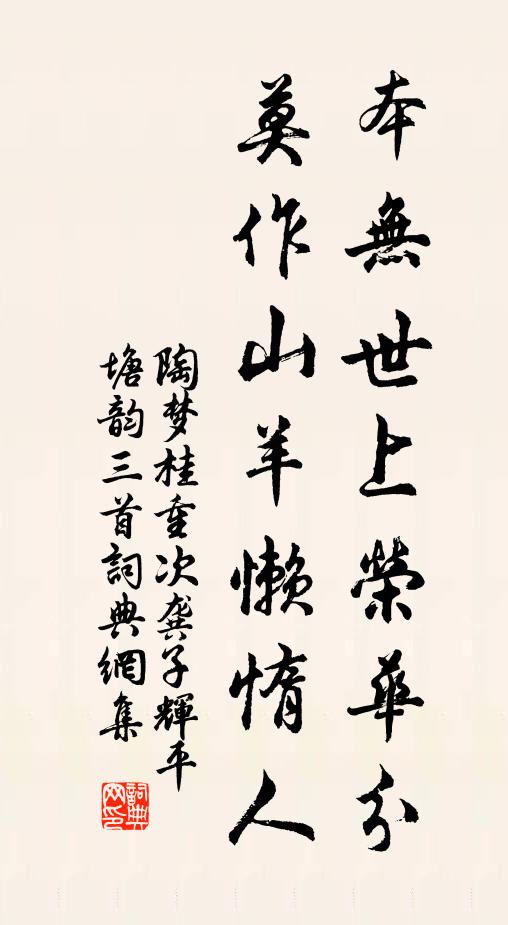 本無世上榮華分
莫作山羊懶惰人
陶梦桂重次龚子輝平
塘韵三首詞典網集
詞典網印